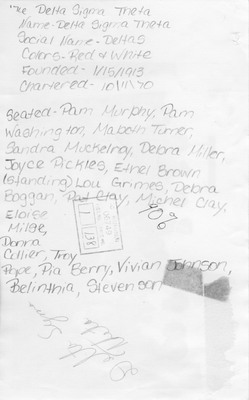 The Delta Sigma Theta
Name-Delta Sigma Theta
Social Name-Deltas
Colors-Red & White
Founded-1/15/1913
Chartered-10/11/70
Seated-Pam Murphy, Pam
Washington, Mabeth Turner,
Sandra Muckelroy, Debra Miller,
Joyce Pickles, Ethel Brown
(standing) Lou Grimes, Debra
Boggan, Pat Clay, Michel Clay,
Eloise
Milge,
Donna
Collier, Troy
Pope, Pia Berry, Vivian Johnson,
Belinthia, Stevenson